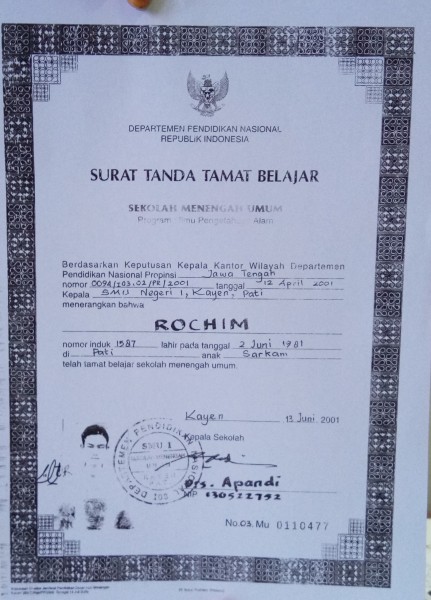 DEPARTEMEN PENDIDIKAN NASIONAL
REPUBLIK INDONESIA
SURAT TANDA TAMAT BELAJAR
SEKOLAH MENENGAH UMUM
Program Ilmu Pengetahuan Alam
Berdasarkan Keputusan Kepala Kantor Wilayah Departemen
Pendidikan Nasional Propinsi Jawa Tengah
nomor 0094/I03.02/PR/2001 tanggal 12 April 2001
Kepala SMU Negeri 1, Kayen, Pati
menerangkan bahwa
ROCHIM
nomor induk 1587 lahir pada tanggal 2 Juni 1981
di Pati anak Sarkam
telah tamat belajar sekolah menengah umum.
Kayen 13 Juni 2001
Kepala Sekolah
DEPARTEMEN PENDIDIKAN
SMU 1
Drs. Apandi
NIP 130522752
No.03.Mu 0110477